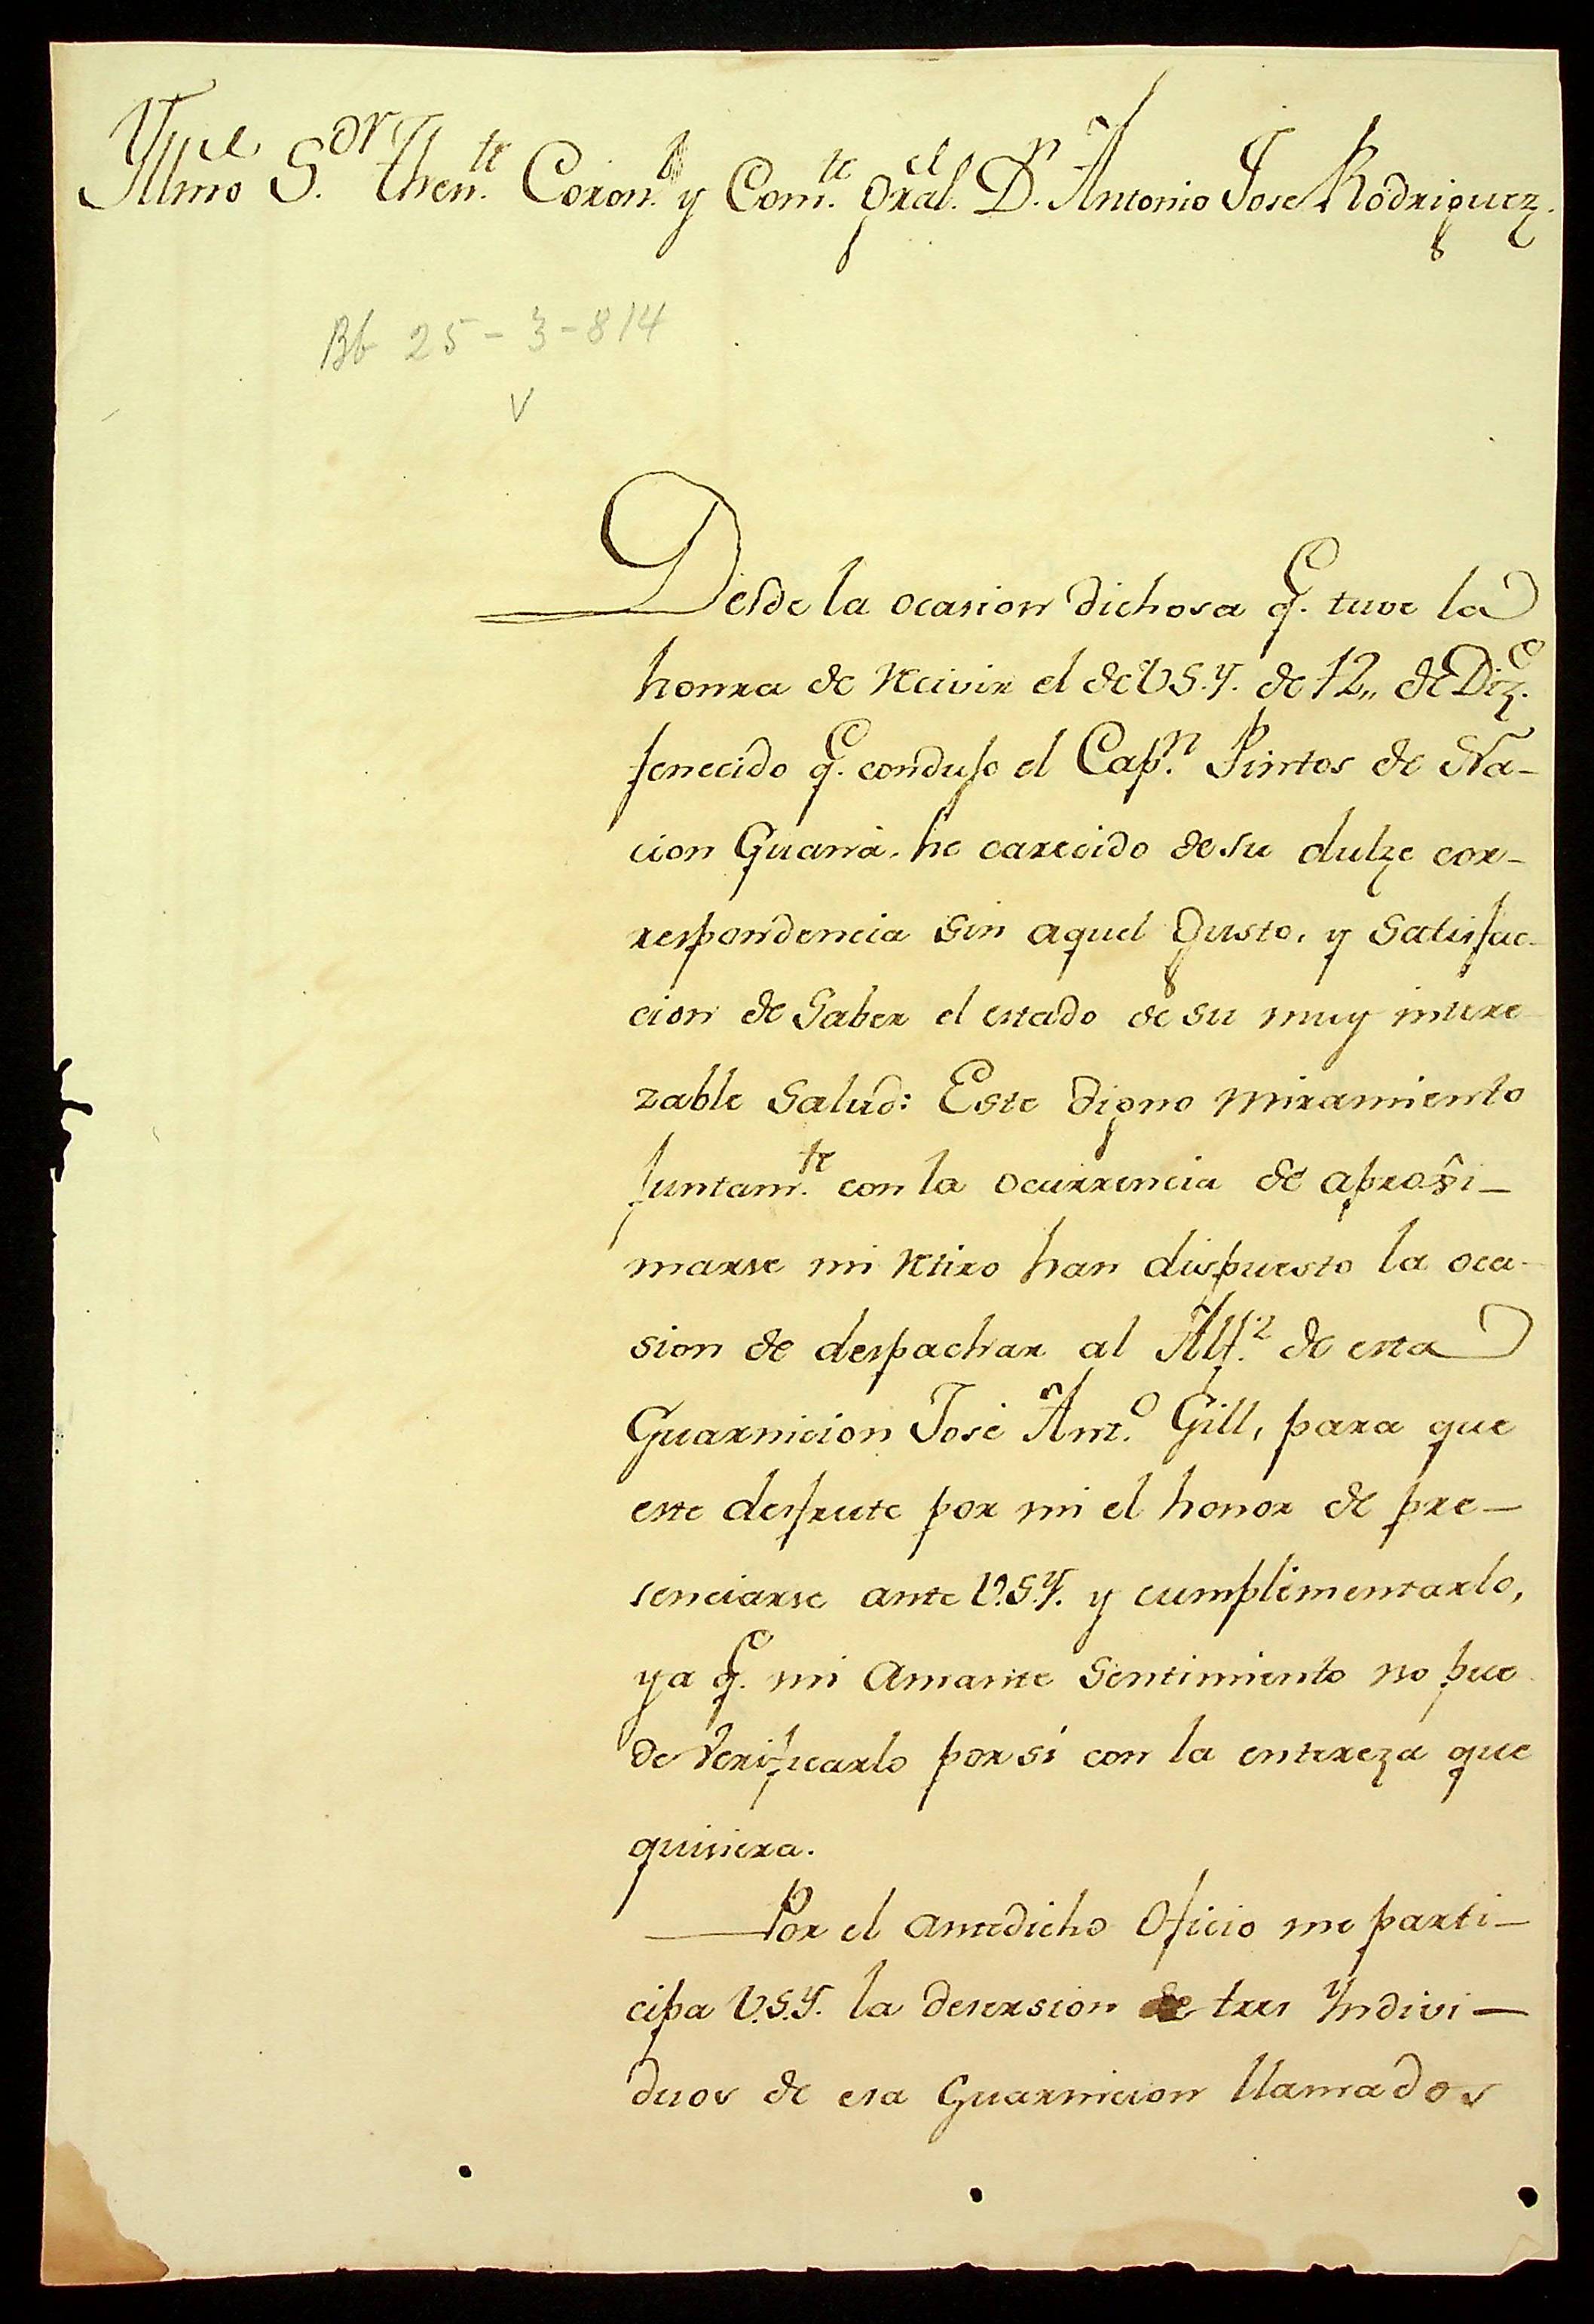 Yllmo S.or Then.te Coron.l y Com.te Gral. el D.n Antonio Jose Rodriguez.
Bb 25-3-814
V
Desde la ocasion dichosa q.e tuve la
honra de recivir el de V.S.Y. de 12,, de Diz.e
fenecido q.e condujo el Cap.n Pintos de Na-
cion Guaná. he carecido de su dulze cor-
respondencia sin aquel Gusto, y Satisfac-
cion de Saber el estado de su muy intere
zable Salud: Este digno miramiento
juntam.te con la ocurrencia de aproxi-
marse mi retiro han dispuesto la oca-
sion de despachar al Alf.z de esta
Guarnicion José Ant.o Gill, para que
este desfrute por mi el honor de pre-
senciarse ante V.S.Y. y cumplimentarlo,
ya q.e mi Amante Sentimiento no pue
de Verificarlo por si con la entereza que
quisiera.
Por el antedicho Oficio me parti-
cipa V.S.Y. la desersion de tres Yndivi-
duos de esa Guarnicion llamados